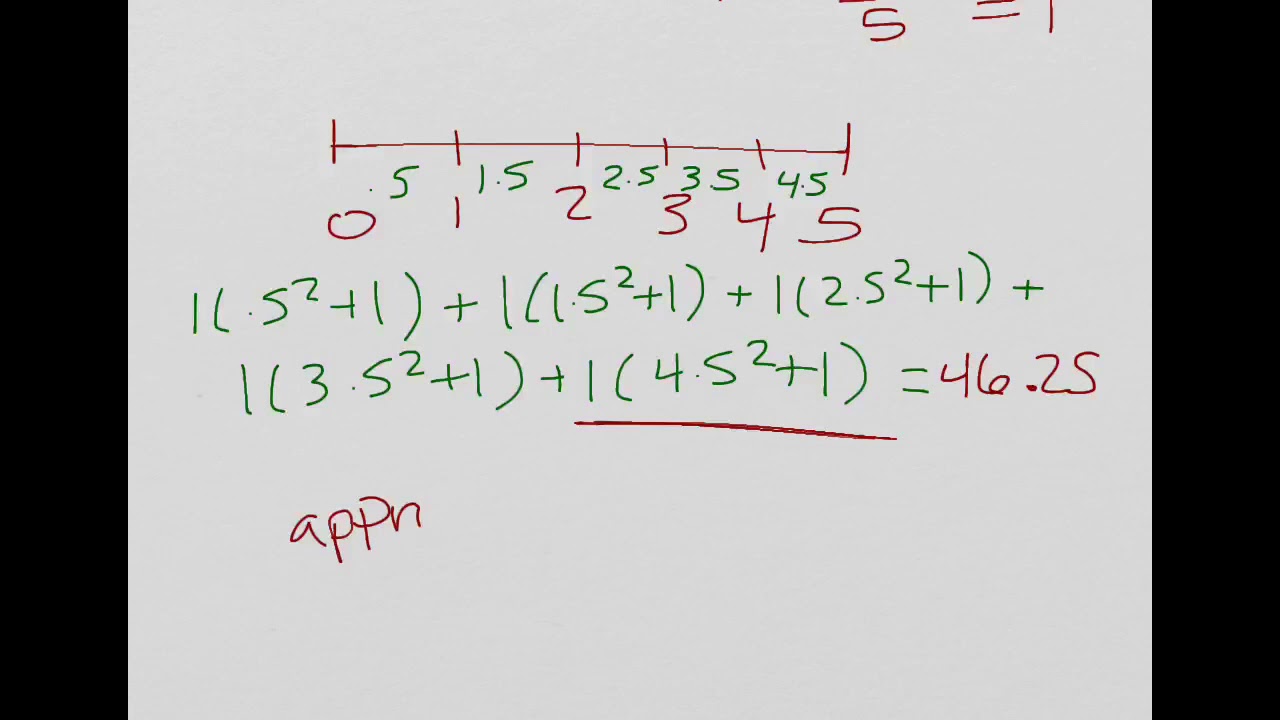 5 = 1
.5 1.5 2.5 3.5 4.5
0 1 2 3 4 5
1(.5²+1) + 1(1.5²+1) + 1(2.5²+1) +
1(3.5²+1) + 1(4.5²+1) = 46.25
appr